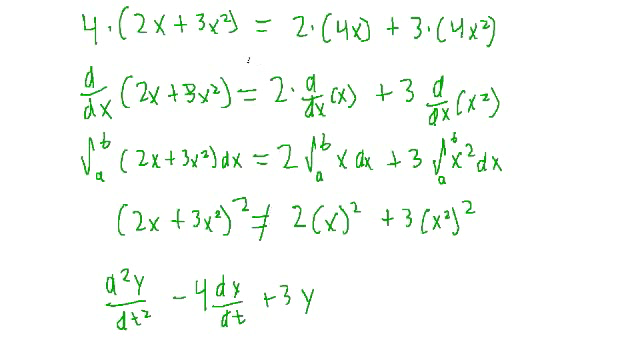 4·(2x + 3x²) = 2·(4x) + 3·(4x²)
d/dx (2x + 3x²) = 2· d/dx (x) + 3 d/dx (x²)
∫ₐᵇ (2x + 3x²) dx = 2 ∫ₐᵇ x dx + 3 ∫ₐᵇ x² dx
(2x + 3x²)² ≠ 2(x)² + 3(x²)²
d²y/dt² - 4 dy/dt + 3y